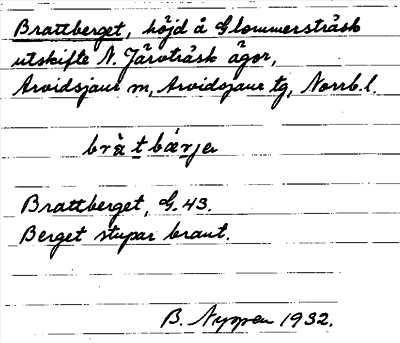 Brattberget, höjd å Glommersträsk
utskifte N. Järvträsk ägor,
Arvidsjaur m, Arvidsjaur tg, Norrb. l.
bràtbærja
Brattberget, G. 43.
Berget stupar braut.
B. Nyman 1932.